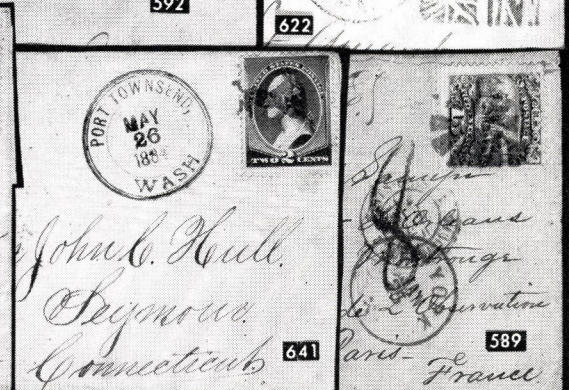 592
622
PORT TOWNSEND,
MAY
26
188
WASH
UNITED STATES POSTAGE
TWO 2 CENTS
John C. Hull.
Seymour.
Connecticut
641
15
8
Orleans
de L'Observation
Paris-
France
589